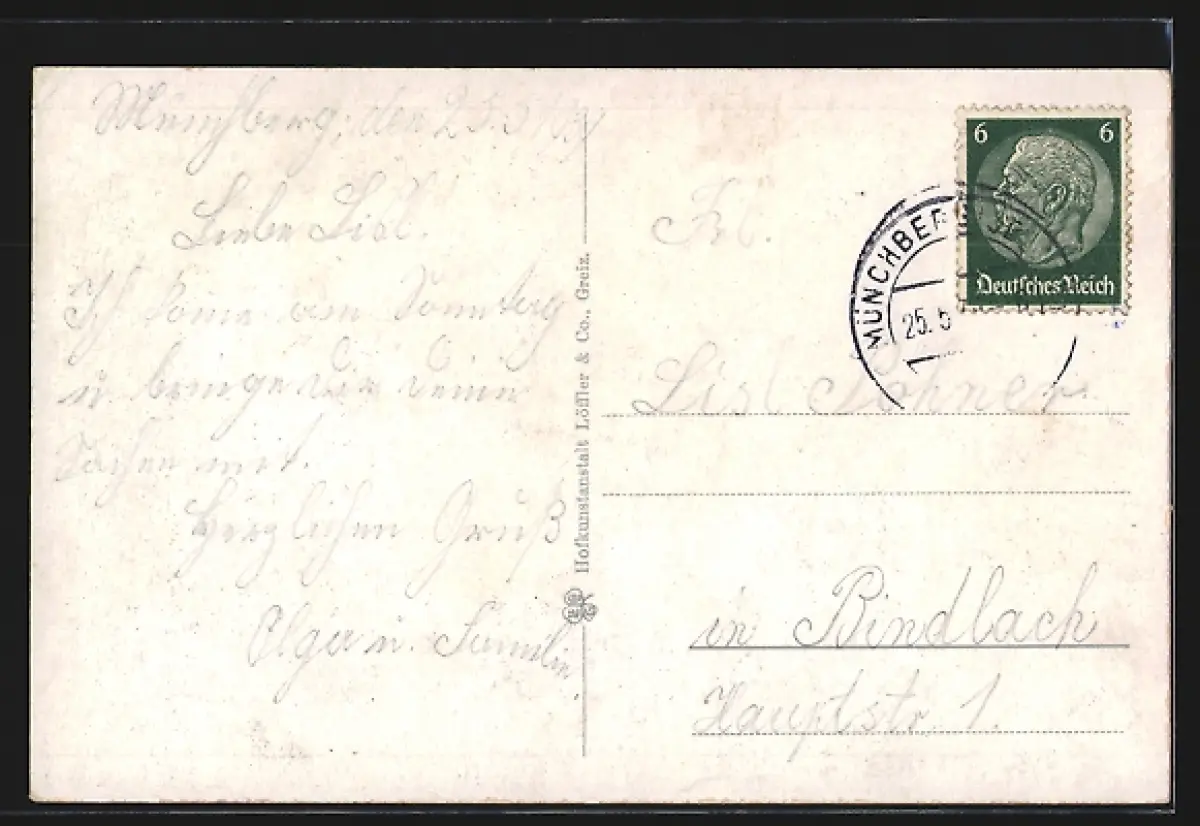 Münchberg, den 25.5.
Liebe Lisl.
Ich komme am Sonntag
u. bringe Dir deine
Sachen mit.
Herzlichen Gruß
Olga u. Familie.
Hofkunstanstalt Löffler & Co., Greiz.
6 6
Deutsches Reich
MÜNCHBERG
25. 5
Frl.
Lisl
in Bindlach
Hauptstr. 1.